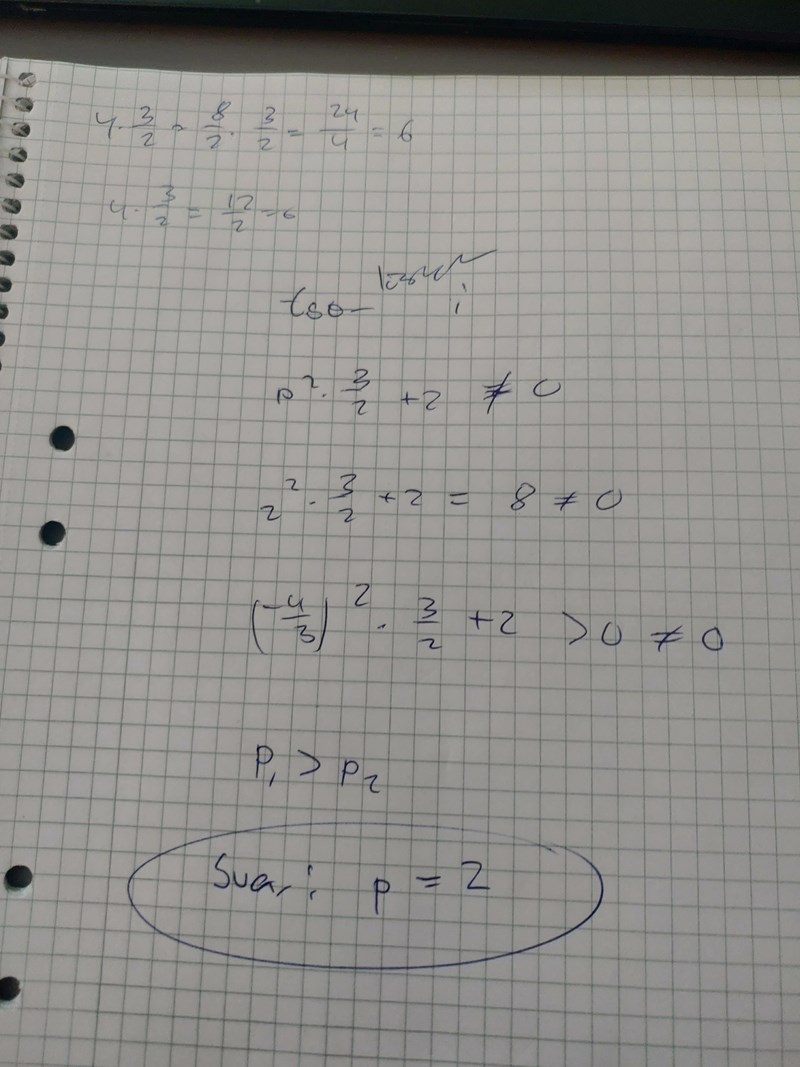 4 · 3/2 = 8/2 · 3/2 = 24/4 = 6
4 · 3/2 = 12/2 = 6
p² · 3/2 + 2 ≠ 0
2² · 3/2 + 2 = 8 ≠ 0
(-4/3)² · 3/2 + 2 > 0 ≠ 0
p₁ > p₂
Svar: p = 2